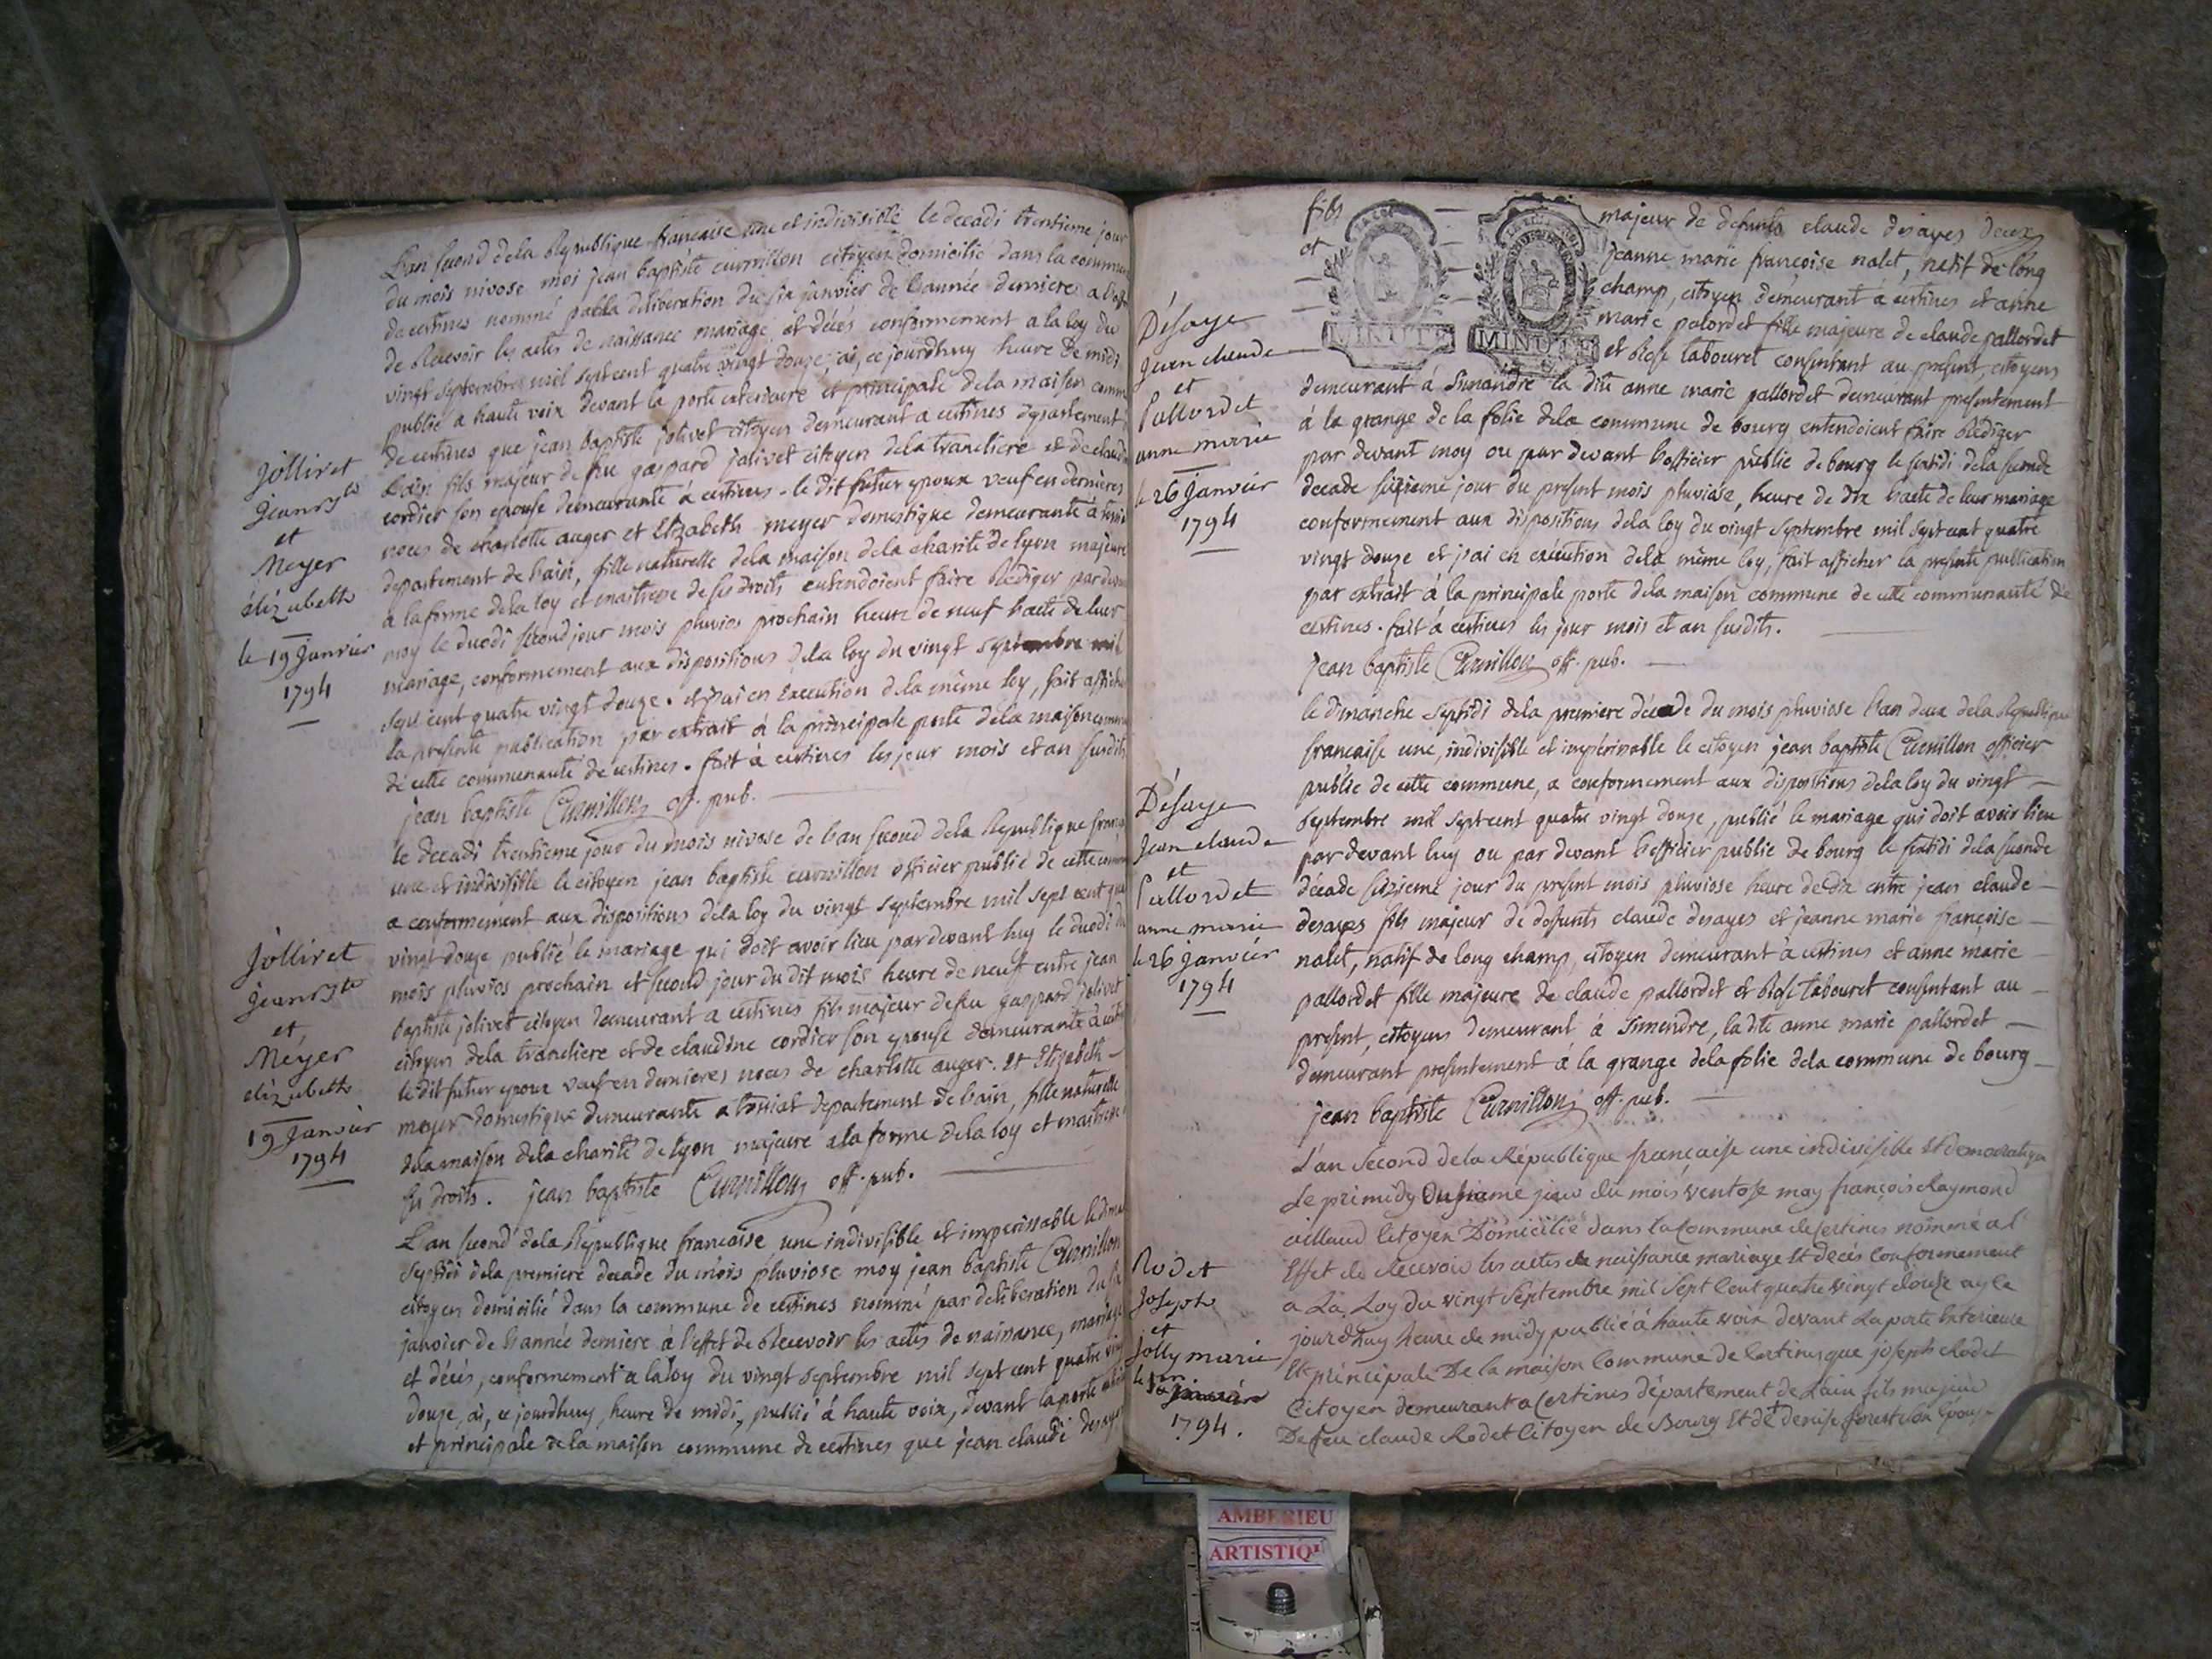 L'an second dela Republique francaise une et indivisible le decadi trentieme jour
du mois nivose moi jean baptiste curnillon citoyen domicilié dans la commune
de certines nommé par la deliberation du six janvier de l'année derniere a l'effet
de Recevoir les actes de naissance mariage et décés conformement a la loy du
vingt septembre mil sept cent quatre vingt douze, ai, ce jourdhuy heure de midi
publié a haute voix devant la porte exterieure et principale dela maison comm
de certines que jean baptiste jolivet citoyen demeurant a certines departement
Lain fils majeur de feu gaspard jolivet citoyen dela trancliere et de claud
cordier son epouse demeurante à certines - le dit futur epoux veuf en dernieres
noces de charlotte auger et Elizabeth meyer domestique demeurante à
departement de hain, fille naturelle dela maison dela charité de lyon majeure
a la forme dela loy et maitresse de ses droits entendoient faire Rediger pardevant
moy le duodi second jour mois pluvios prochain heure de neuf l'acte de leur
mariage, conformement aux dispositions dela loy du vingt septembre mil
sept cent quatre vingt douze. et j'ai en execution dela même loy, fait afficher
la presente publication par extrait à la principale porte dela maison commune
de cette communauté de certines. fait à certines les jour mois et an susdits
jean baptiste Curnillon off. pub.
Jolliret
jean Bte
et
Meyer
élizabette
le 19 janvier
1794
le decadi trentieme jour du mois nivose de l'an second dela Republique franc
une et indivisible le citoyen jean baptiste curnillon officier public de cette comm
a conformement aux dispositions dela loy du vingt septembre mil sept cent qua
vingt douze publié le mariage qui doit avoir lieu pardevant luy le duodi du
mois pluvios prochain et second jour du dit mois heure de neuf entre jean
baptiste jolivet citoyen demeurant a certines fils majeur defeu gaspard jolivet
citoyen dela trancliere et de claudine cordier son epouse demeurante à certi
le dit futur epoux veuf en dernieres noces de charlotte auger. et Elizabeth
meyer domestique demeurante a tossiat departement de hain, fille naturelle
dela maison dela charité de lyon majeure a la forme dela loy et maitresse
ses droits. jean baptiste Curnillon off. pub.
Jolliret
jean Bte
et
Méyer
élizabette
19 janvier
1794
L'an second dela Republique francaise une indivisible et imperissable le dima
septidi dela premiere decade du mois pluviose moy jean baptiste Curnillon
citoyen domicilié dans la commune de certines nommé par deliberation du six
janvier de l'année derniere à l'effet de Recevoir les actes de naissance, mariage
et décés, conformement a la loy du vingt septembre mil sept cent quatre vin
douze, ai, ce jourdhuy, heure de midi, publié à haute voix, devant la porte
et principale dela maison commune de certines que jean claude desayes
fils majeur de defunts claude desayes deux
et jeanne marie françoise nalet, natif de long
MINUTE
MINUTE
champ, citoyen demeurant à certines et anne
marie palordet fille majeure de claude pallordet
et Rose tabouret consentant au present, citoyens
demeurant à Simandre la dite anne marie pallordet demeurant presentement
à la grange de la folie dela commune de bourg entendoient faire Rediger
par devant moy ou par devant l'officier public de bourg le sextidi dela seconde
decade seizieme jour du present mois pluviose, heure de dix l'acte de leur mariage
conformement aux dispositions dela loy du vingt septembre mil sept cent quatre
vingt douze et j'ai en execution dela même loy, fait afficher la presente publication
par extrait à la principale porte dela maison commune de cette communauté de
certines. fait à certines les jour mois et an susdits.
jean baptiste Curnillon off. pub.
Désaye
jean claude
et
Pallordet
anne marie
le 26 janvier
1794
le dimanche septidi dela premiere décade du mois pluviose l'an deux dela Republique
francaise une, indivisible et imperissable le citoyen jean baptiste Curnillon officier
public de cette commune, a conformement aux dispositions dela loy du vingt
septembre mil sept cent quatre vingt douze, publié le mariage qui doit avoir lieu
par devant luy ou par devant l'officier public de bourg le sextidi dela seconde
décade seizieme jour du present mois pluviose heure de dix entre jean claude
desayes fils majeur de defunts claude desayes et jeanne marie françoise
nalet, natif de long champ, citoyen demeurant à certines et anne marie
pallordet fille majeure de claude pallordet et Rose tabouret consentant au
present, citoyens demeurant à Simendre, ladite anne marie pallordet
demeurant presentement à la grange dela folie dela commune de bourg
jean baptiste Curnillon off. pub.
Désaye
jean claude
et
Pallordet
anne marie
le 26 janvier
1794
L'an Second dela République francaise une indivisible Et democratique
Le primidy Onsieme jour du mois ventose moy françois Raymond
aillaud Citoyen Domicilié dans la Commune de Certines nommé a l
Effet de Recevoir les actes de naissance mariage Et deces Conformement
a La Loy du vingt Septembre mil Sept Cent quatre vingt douze ay Ce
jourdhuy heure de midy publié á haute voix devant La porte Exterieure
Et principale De la maison Commune de Certines que joseph Rodet
Citoyen demeurant a Certines département de Lain fils majeur
De feu claude Rodet Citoyen de Bourg Et de denise forest son Epouse
Rodet
Joseph
et
jolly marie
le
1794.
AMBERIEU
ARTISTIQ